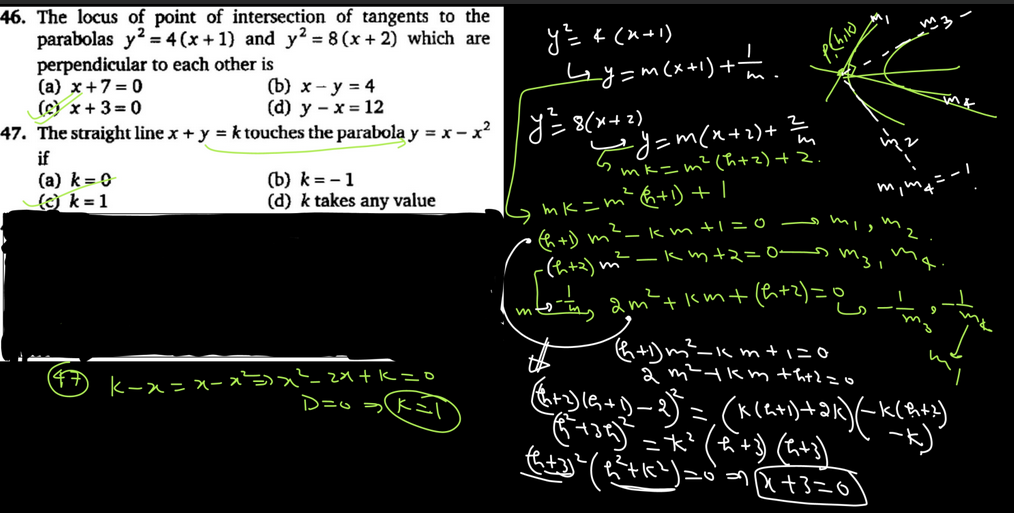 46. The locus of point of intersection of tangents to the
parabolas y² = 4 (x + 1) and y² = 8 (x + 2) which are
perpendicular to each other is
(a) x + 7 = 0 (b) x − y = 4
(c) x + 3 = 0 (d) y − x = 12
47. The straight line x + y = k touches the parabola y = x − x²
if
(a) k = 0 (b) k = − 1
(c) k = 1 (d) k takes any value
47 K − x = x − x² ⇒ x² − 2x + K = 0
D = 0 ⇒ K = 1
y² = 4 (x+1)
↳ y = m(x+1) + 1/m.
y² = 8(x+2)
↳ y = m(x+2) + 2/m
mk = m²(h+2) + 2.
mk = m²(h+1) + 1
(h+1) m² − Km + 1 = 0 → m₁, m₂.
(h+2) m² − Km + 2 = 0 → m₃, m₄.
m → −1/m 2m² + Km + (h+2) = 0 ↳ −1/m₃, −1/m₄
m₁
(h+1)m² − Km + 1 = 0
2m² + Km + h+2 = 0
((h+2)(h+1) − 2)² = (K(h+1) + 2K)(−K(h+2) − K)
(h² + 3h)² = −K² (h+3)(h+3)
(h+3)² (h² + K²) = 0 ⇒ x + 3 = 0
P(h,k)
m₁
m₃
m₄
m₂
m₁m₄ = −1